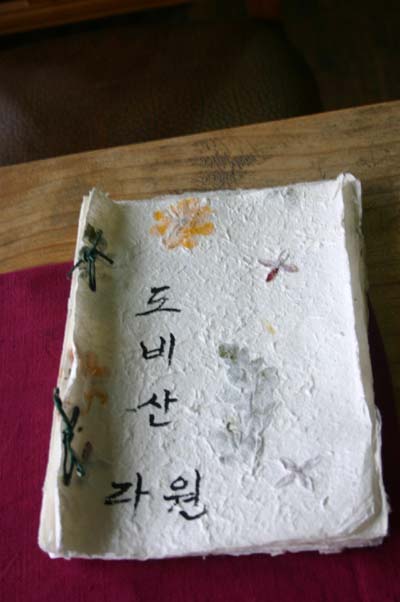 도비산
다원